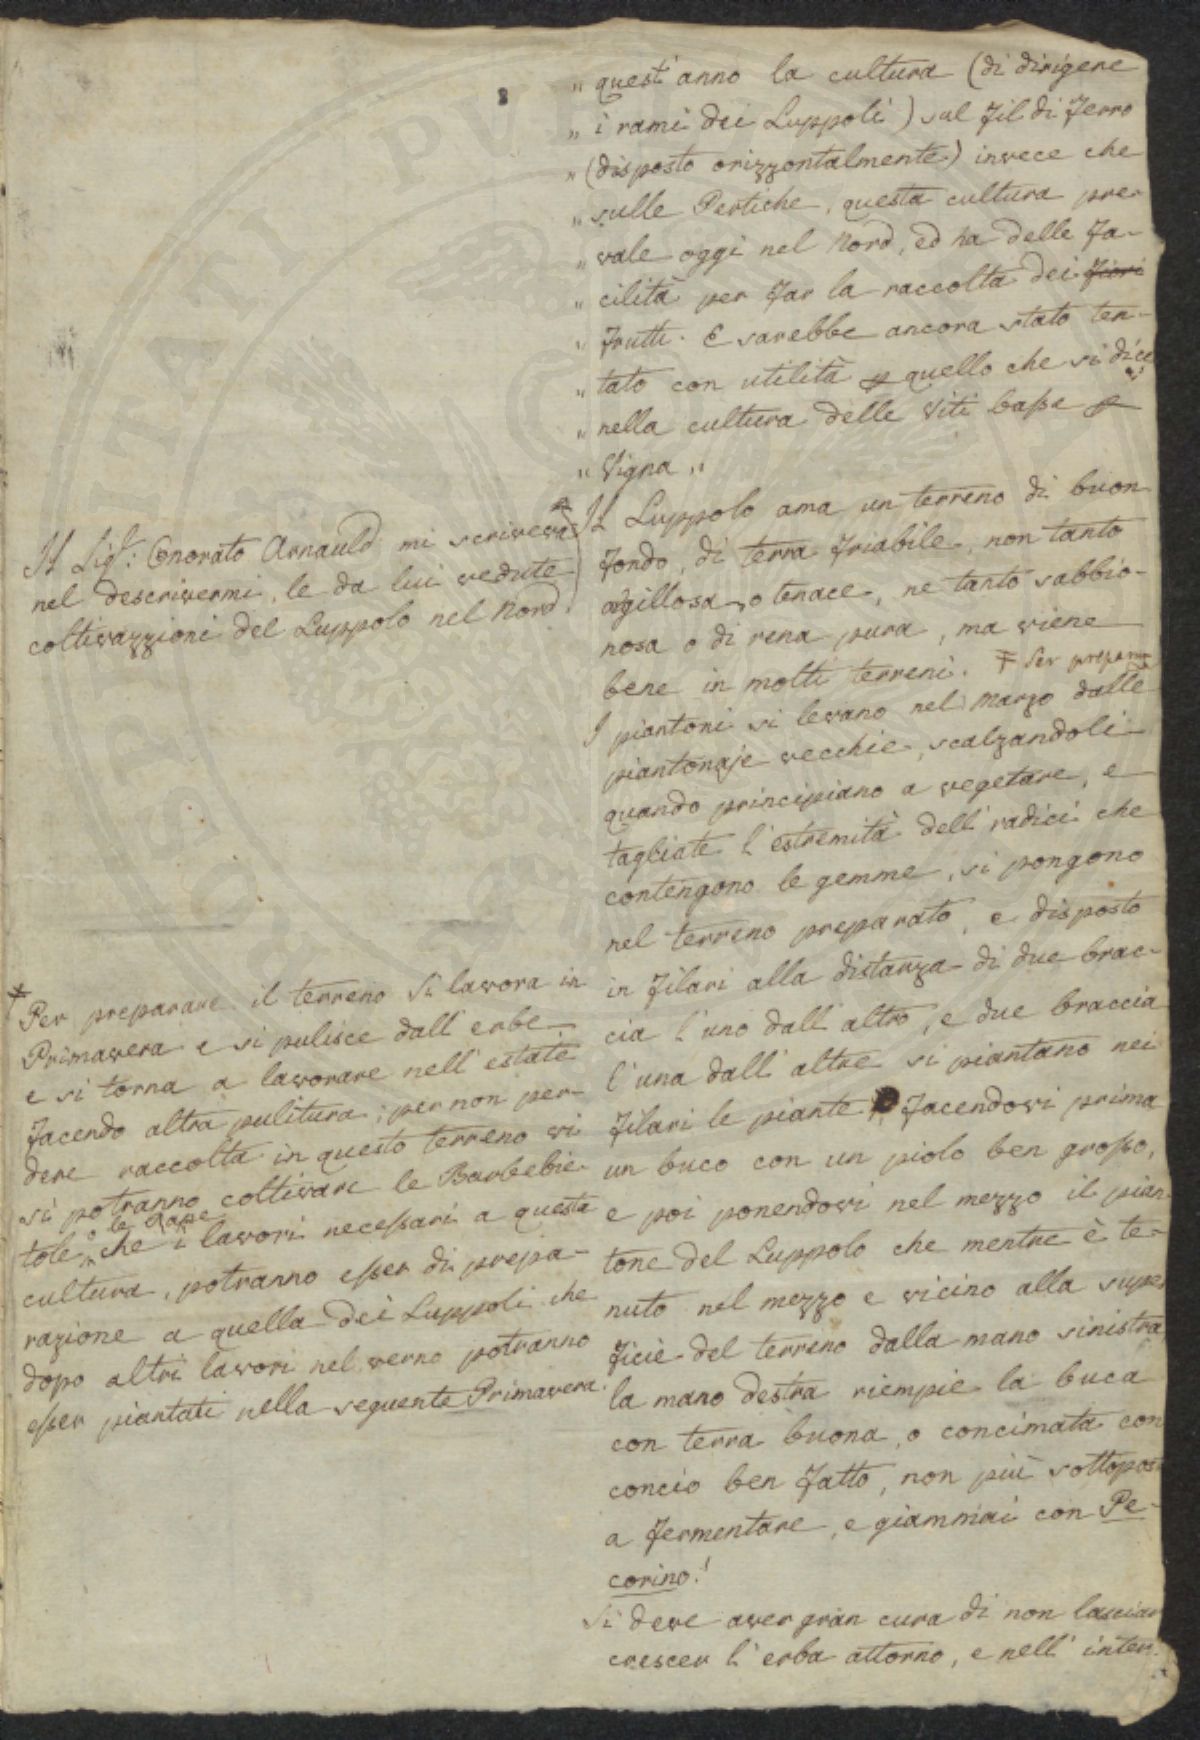 „ quest' anno la cultura (di dirigere
„ i rami dei Luppoli) sul fil di ferro
„ (disposto orizzontalmente) invece che
„ sulle Pertiche, questa cultura pre-
„ vale oggi nel Nord, ed ha delle fa-
„ cilità per far la raccolta dei fiori
„ frutti. E sarebbe ancora stato ten-
„ tato con utilità p quello che si dice
„ nella cultura delle Viti basse a
„ Vigna „
Il Luppolo ama un terreno di buon
fondo, di terra friabile, non tanto
argillosa, o tenace, ne tanto sabbio-
nosa o di rena pura, ma viene
bene in molti terreni. ‡ Per preparare
I piantoni si levano nel Marzo dalle
piantonaje vecchie, scalzandoli
quando principiano a vegetare, e
tagliate l'estremità dell' radici che
contengono le gemme, si pongono
nel terreno preparato, e disposto
in filari alla distanza di due brac-
cia l'uno dall' altro, e due braccia
l'una dall' altre si piantano nei
filari le piante, facendovi prima
un buco con un piolo ben grosso,
e poi ponendovi nel mezzo il pian-
tone del Luppolo che mentre è te-
nuto nel mezzo e vicino alla super
ficie del terreno dalla mano sinistra
la mano destra riempie la buca
con terra buona, o concimata con
concio ben fatto, non più sottoposto
a fermentare, e giammai con Pe-
corino!
Si deve aver gran cura di non lasciar
crescer l'erba attorno, e nell' inter-
Il Sig.: Onorato Arnauld mi scriveva
nel descrivermi, le da lui vedute
coltivazzioni del Luppolo nel Nord.
‡ Per preparare il terreno si lavora in
Primavera e si pulisce dall' erbe,
e si torna a lavorare nell' estate
facendo altra pulitura; per non per-
dere raccolta in questo terreno vi
si potranno coltivare le Barbebie-
o le Rape
tole che i lavori necessari a questa
cultura, potranno esser di prepa-
razione a quella dei Luppoli che
dopo altri lavori nel verno potranno
esser piantati nella seguente Primavera.